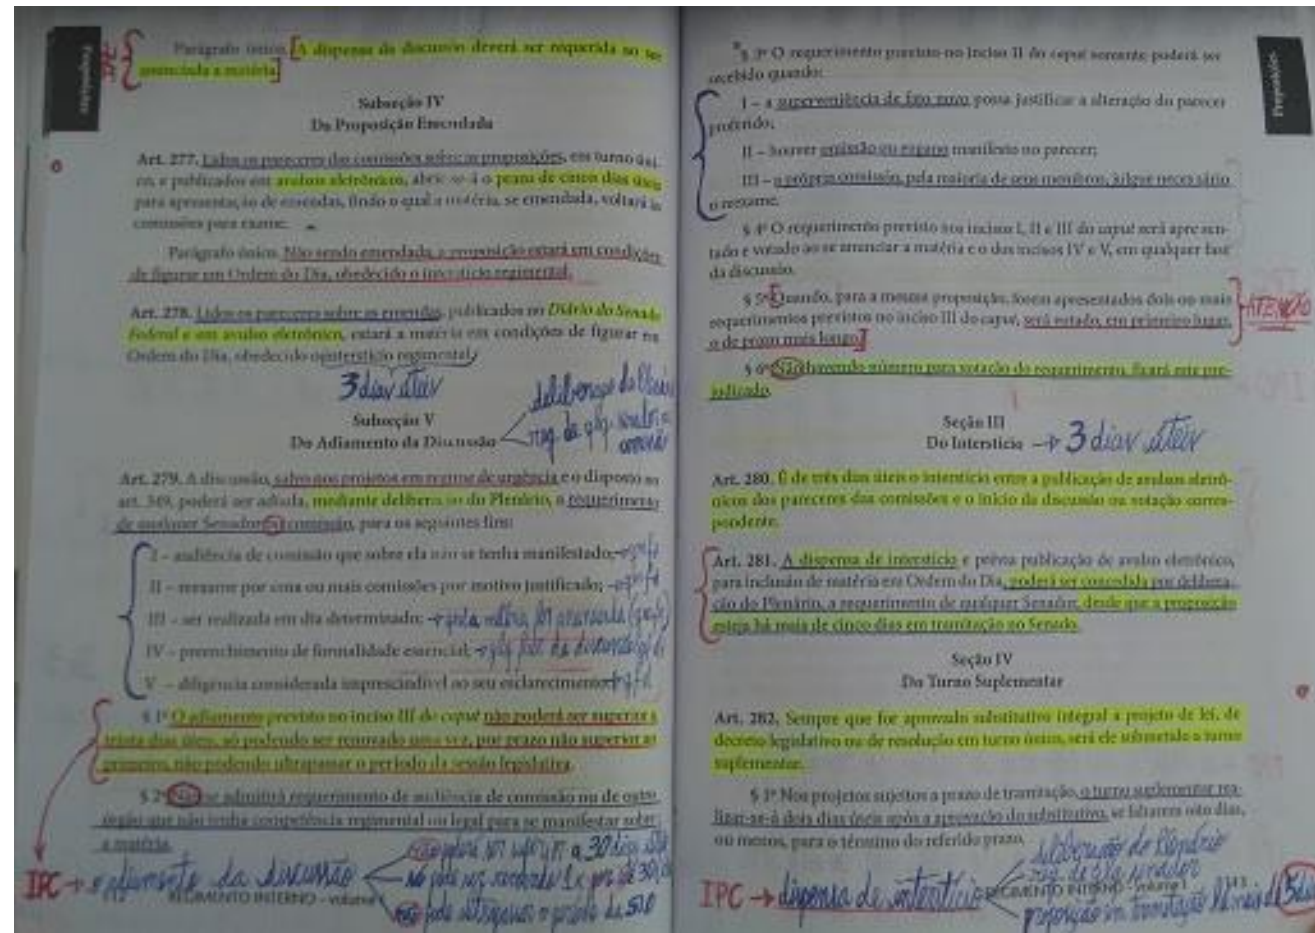 Proposições
IPC
Parágrafo único. A dispensa da discussão deverá ser requerida ao ser
anunciada a matéria.
Subseção IV
Da Proposição Emendada
Art. 277. Lidos os pareceres das comissões sobre as proposições, em turno úni-
co, e publicados em avulsos eletrônicos, abrir-se-á o prazo de cinco dias úteis
para apresentação de emendas, findo o qual a matéria, se emendada, voltará às
comissões para exame.
Parágrafo único. Não sendo emendada, a proposição estará em condições
de figurar em Ordem do Dia, obedecido o interstício regimental.
Art. 278. Lidos os pareceres sobre as emendas, publicados no Diário do Senado
Federal e em avulso eletrônico, estará a matéria em condições de figurar na
Ordem do Dia, obedecido o interstício regimental.
3 dias úteis
Subseção V
Do Adiamento da Discussão
Art. 279. A discussão, salvo nos projetos em regime de urgência e o disposto no
art. 349, poderá ser adiada, mediante deliberação do Plenário, a requerimento
de qualquer Senador ou comissão, para os seguintes fins:
I – audiência de comissão que sobre ela não se tenha manifestado;
II – reexame por uma ou mais comissões por motivo justificado;
III – ser realizada em dia determinado;
IV – preenchimento de formalidade essencial;
V – diligência considerada imprescindível ao seu esclarecimento.
§ 1º O adiamento previsto no inciso III do caput não poderá ser superior a
trinta dias úteis, só podendo ser renovado uma vez, por prazo não superior ao
primeiro, não podendo ultrapassar o período da sessão legislativa.
§ 2º Não se admitirá requerimento de audiência de comissão ou de outro
órgão que não tenha competência regimental ou legal para se manifestar sobre
a matéria.
IPC → adiamento da discussão
não poderá ser superior a 30 dias
REGIMENTO INTERNO - volume
Proposições
§ 3º O requerimento previsto no inciso II do caput somente poderá ser
recebido quando:
I – a superveniência de fato novo possa justificar a alteração do parecer
proferido;
II – houver omissão ou engano manifesto no parecer;
III – a própria comissão, pela maioria de seus membros, julgue necessário
o reexame.
§ 4º O requerimento previsto nos incisos I, II e III do caput será apresen-
tado e votado ao se anunciar a matéria e o dos incisos IV e V, em qualquer fase
da discussão.
§ 5º Quando, para a mesma proposição, forem apresentados dois ou mais
requerimentos previstos no inciso III do caput, será votado, em primeiro lugar,
o de prazo mais longo.
ATENÇÃO
§ 6º Não havendo número para votação do requerimento, ficará este pre-
judicado.
Seção III
Do Interstício → 3 dias úteis
Art. 280. É de três dias úteis o interstício entre a publicação de avulsos eletrô-
nicos dos pareceres das comissões e o início da discussão ou votação corres-
pondente.
Art. 281. A dispensa de interstício e prévia publicação de avulso eletrônico,
para inclusão de matéria em Ordem do Dia, poderá ser concedida por delibera-
ção do Plenário, a requerimento de qualquer Senador, desde que a proposição
esteja há mais de cinco dias em tramitação no Senado.
Seção IV
Do Turno Suplementar
Art. 282. Sempre que for aprovado substitutivo integral a projeto de lei, de
decreto legislativo ou de resolução em turno único, será ele submetido a turno
suplementar.
§ 1º Nos projetos sujeitos a prazo de tramitação, o turno suplementar rea-
lizar-se-á dois dias úteis após a aprovação do substitutivo, se faltarem oito dias,
ou menos, para o término do referido prazo.
deliberação do Plenário
req. de qlq. senador
IPC → dispensa de interstício
proposição em tramitação há mais de 5 dias
REGIMENTO INTERNO - volume I